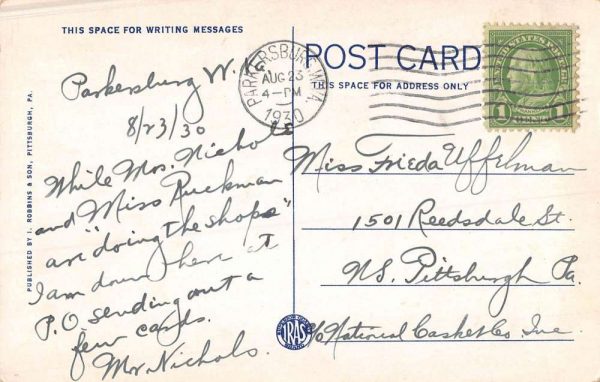 THIS SPACE FOR WRITING MESSAGES
Parkersburg W.Va.
8/23/30
While Mrs. Nichols
and Miss Ruckman
are "doing the shops"
I am down here at
P.O sending out a
few cards.
Mr. Nichols.
PUBLISHED BY I. ROBBINS & SON, PITTSBURGH, PA.
POST CARD
THIS SPACE FOR ADDRESS ONLY
PARKERSBURG, W.VA.
AUG 23
4-PM
1930
UNITED STATES POSTAGE
FRANKLIN
1 1
Miss Frieda Uffelman
1501 Reedsdale St.
N.S. Pittsburgh Pa.
c/o National Casket Co. Inc.
IRAS